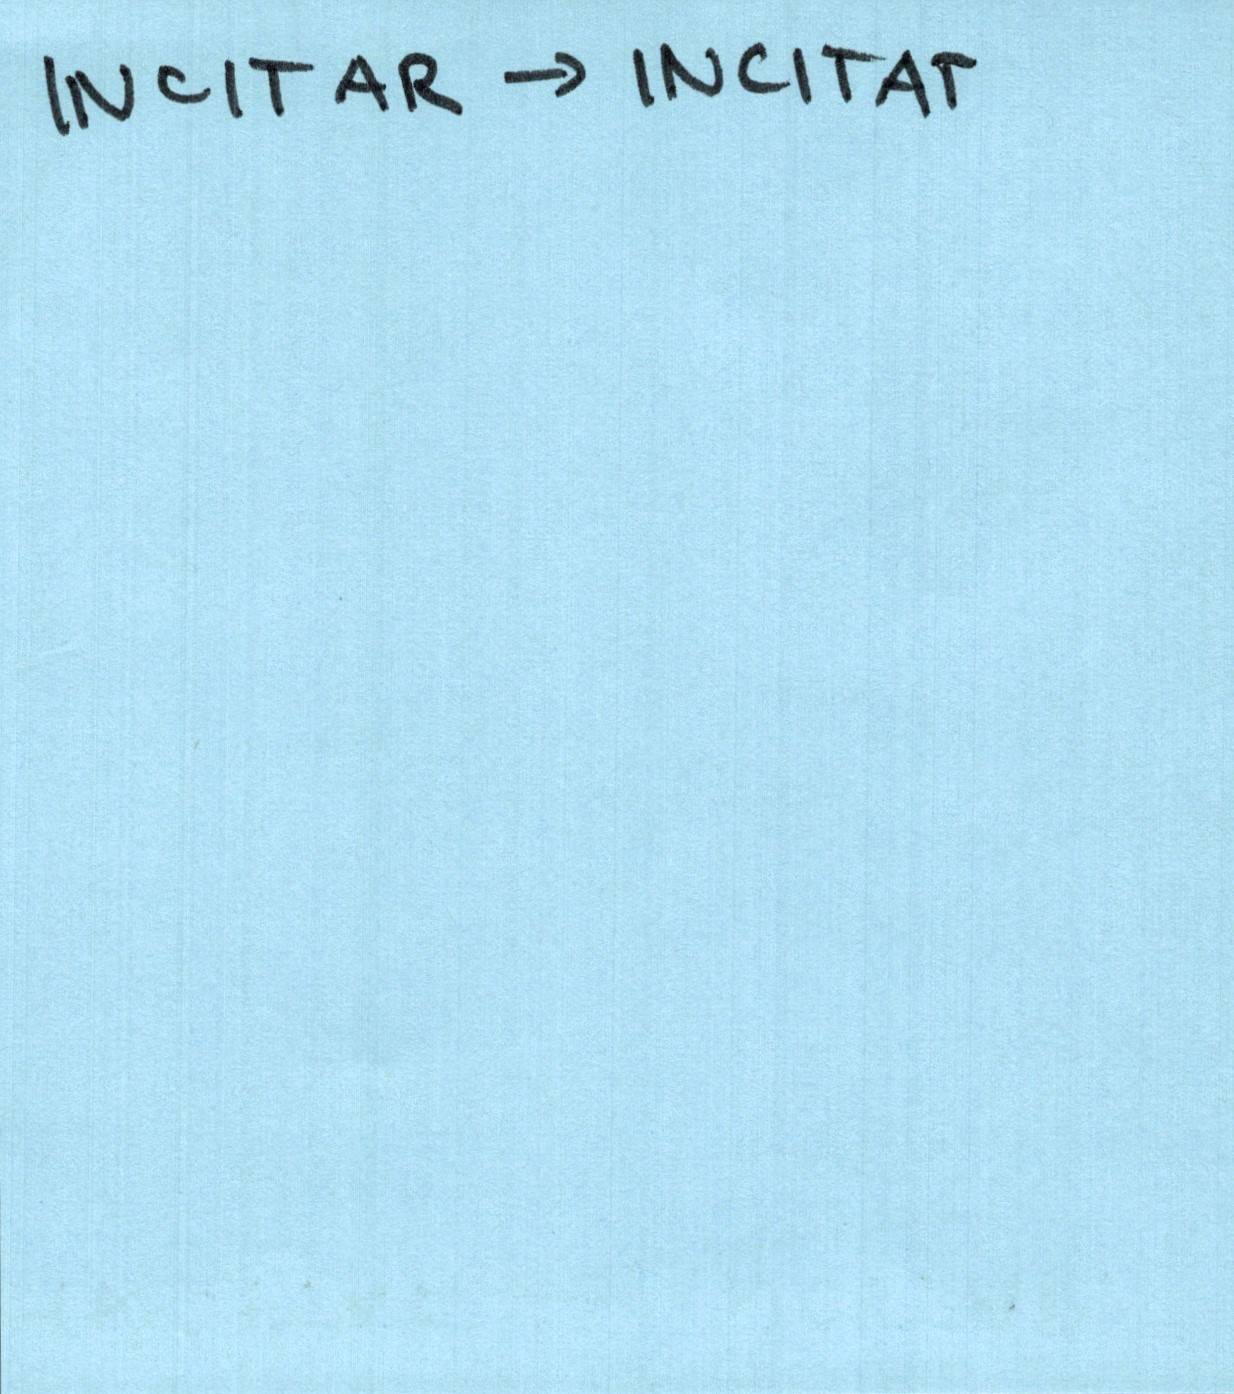 INCITAR → INCITAT